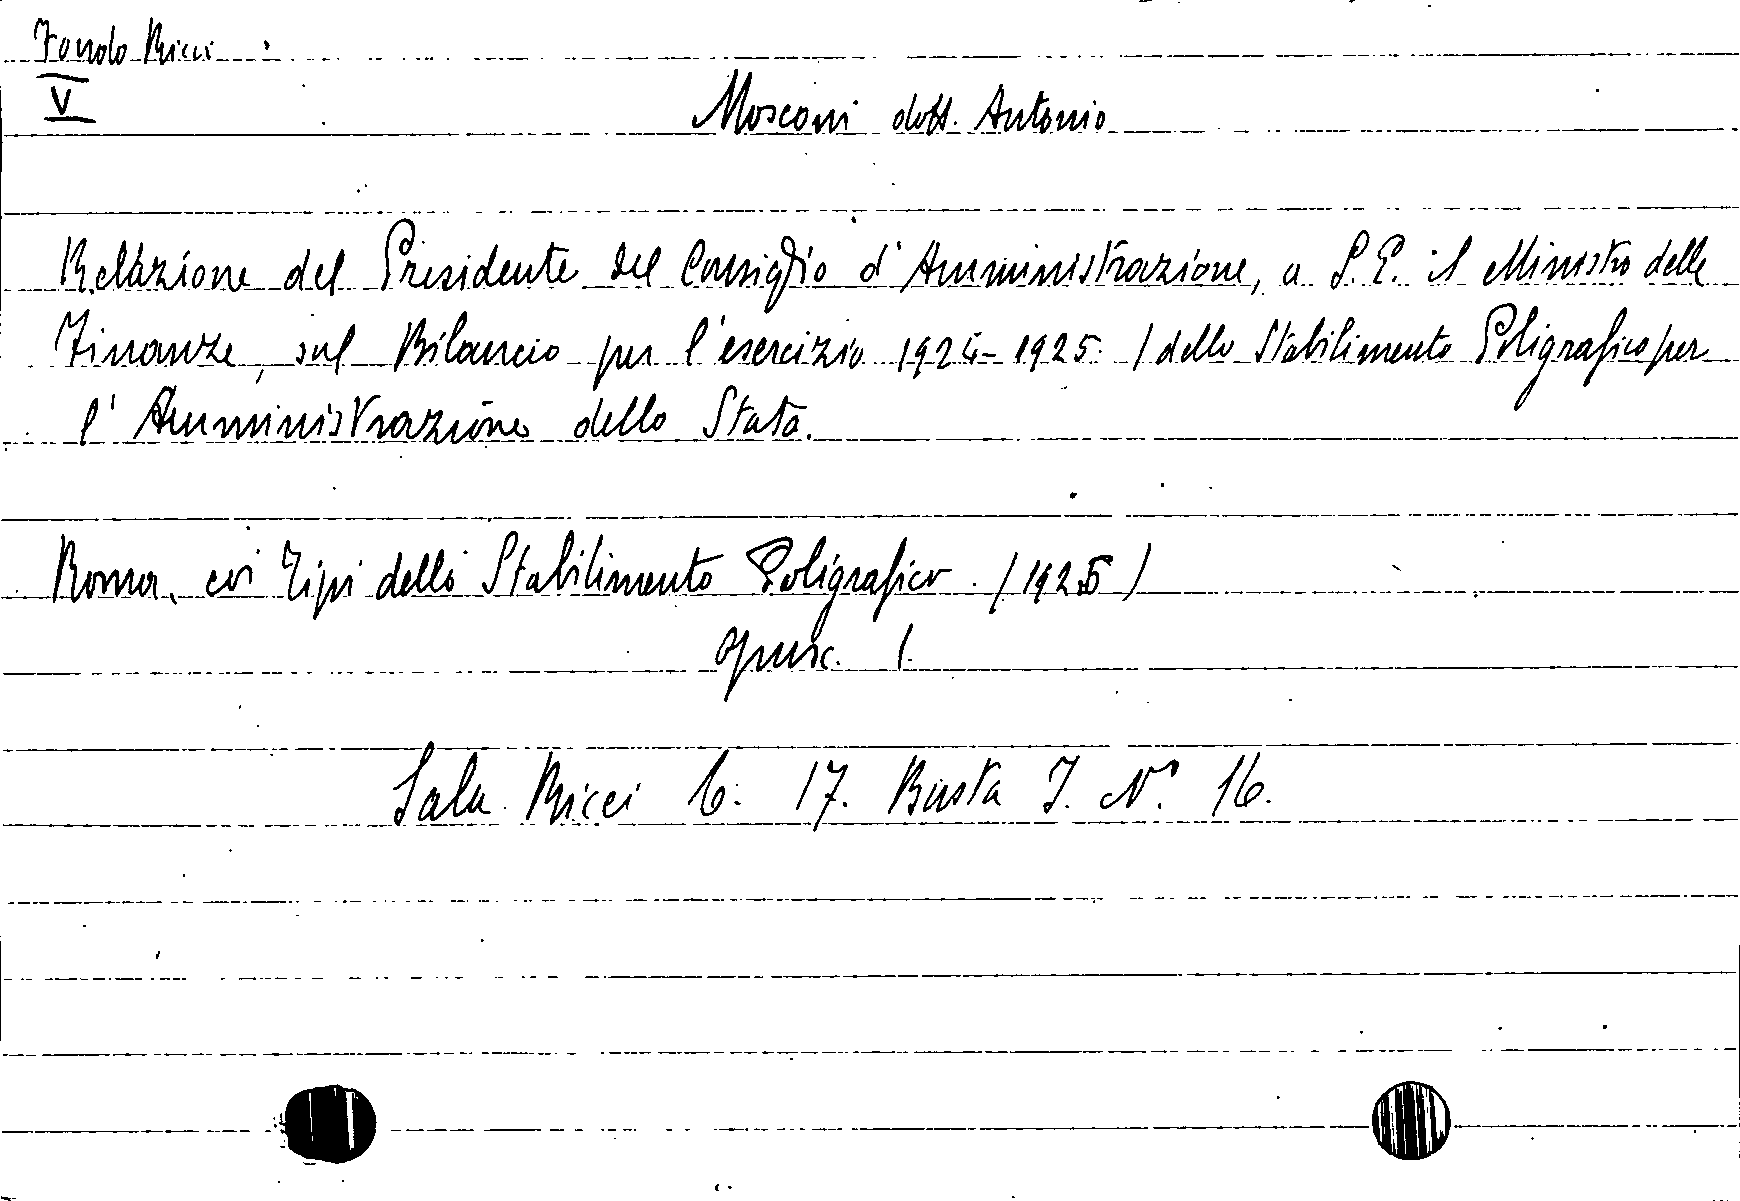 Fondo Ricci
V
Mosconi dott. Antonio
Relazione del Presidente del Consiglio d'Amministrazione, a S. E. il Ministro delle
Finanze, sul Bilancio per l'esercizio 1924-1925. / dello Stabilimento Poligrafico per
l'Amministrazione dello Stato.
Roma, coi Tipi dello Stabilimento Poligrafico. (1925)
opusc. 1.
Sala Ricci 6. 17. Busta I. N.° 16.